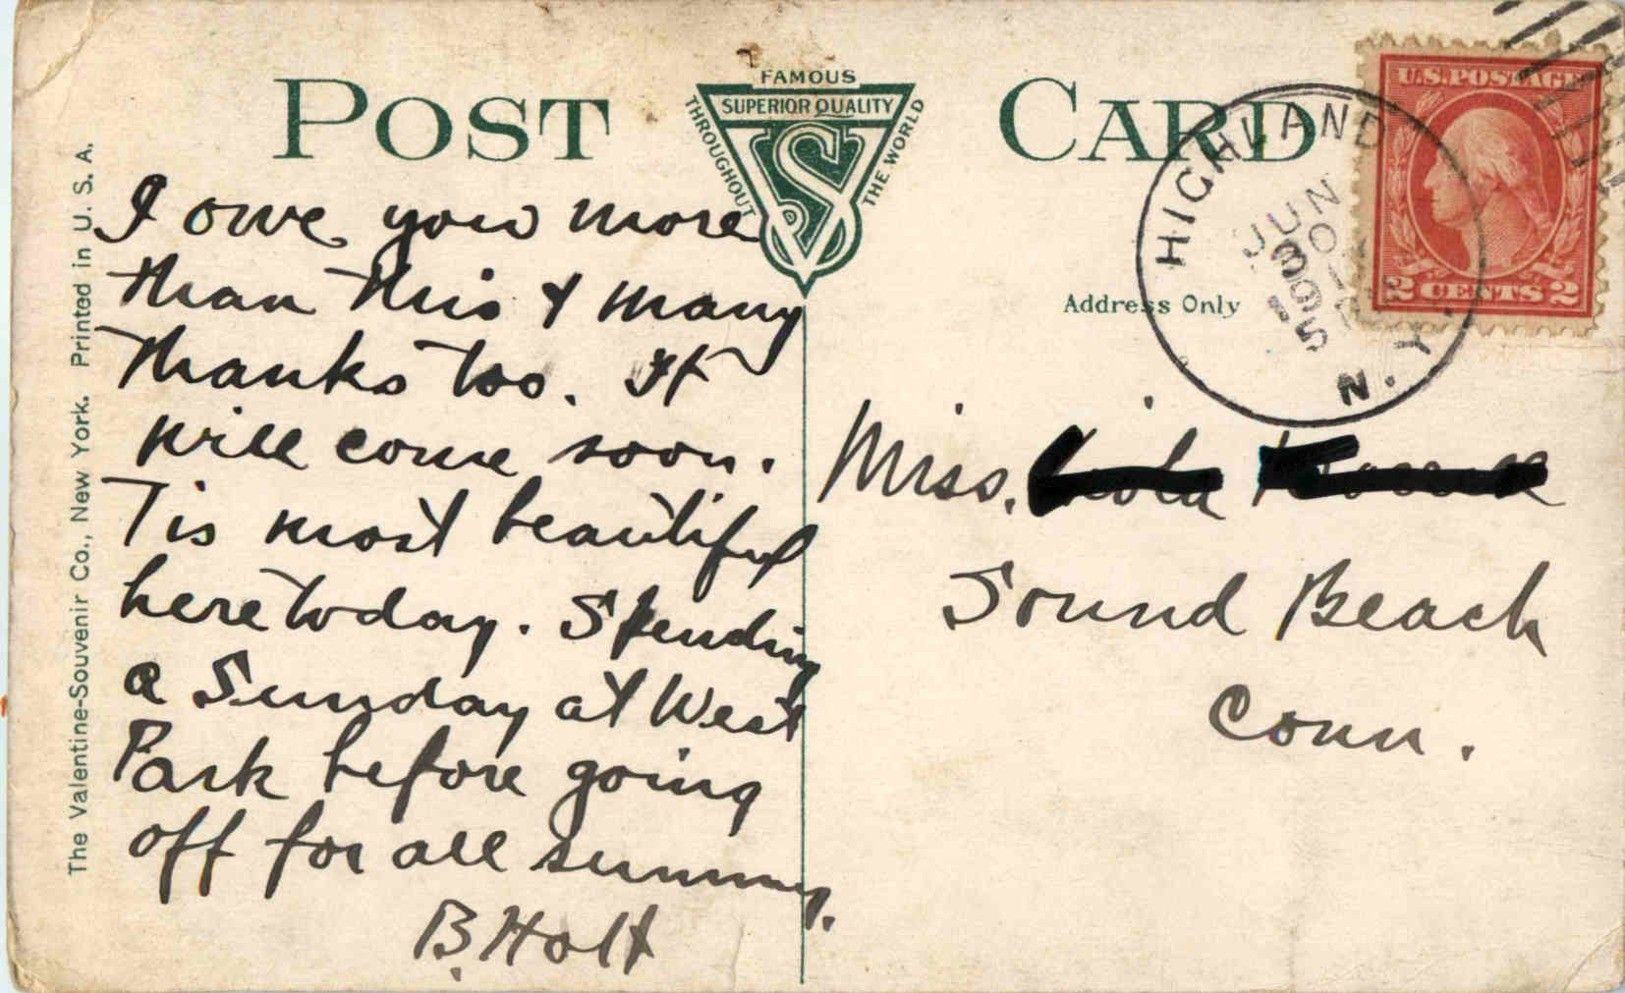 POST CARD
FAMOUS
SUPERIOR QUALITY
THROUGHOUT
THE WORLD
VS
The Valentine-Souvenir Co., New York. Printed in U. S. A.
I owe you more
than this & many
thanks too. It
will come soon.
Tis most beautiful
here today. Spending
a Sunday at West
Park before going
off for all summer.
B. Holt
Address Only
HIGHLAND
JUN
N. Y.
U.S. POSTAGE
2 CENTS 2
Miss.
Sound Beach
Conn.